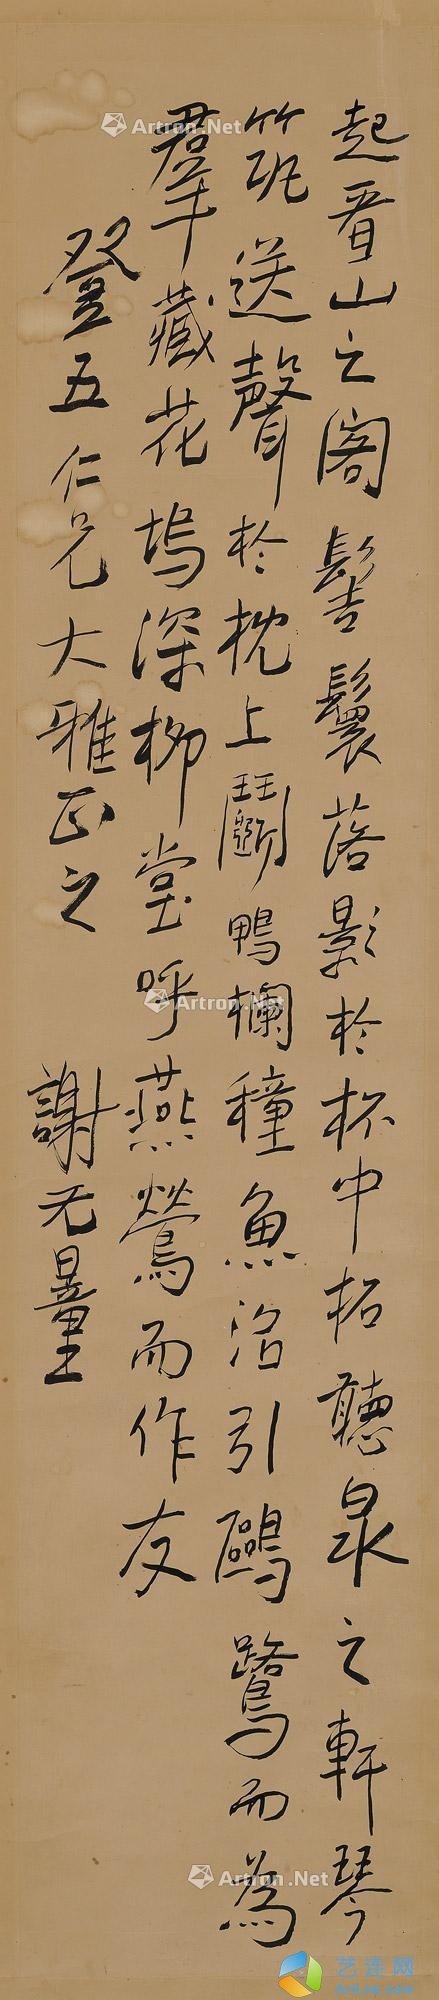 起看山之阁髻鬟落影於杯中拓聽泉之軒琴
筑送聲於枕上鬭鴨欄穜魚沼引鷗鷺而為
羣藏花塢深柳堂呼燕鶯而作友
登五仁兄大雅正之
謝无量
Artron.Net
Artron.Net
Artron.Net
Artron.Net
艺连网